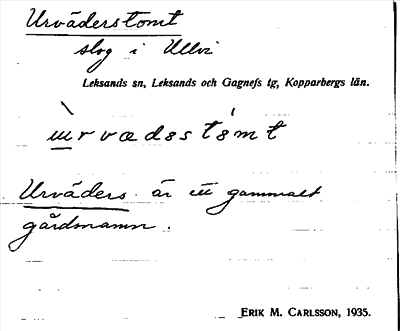 Urväderstomt
slog i Ullvi
Leksands sn, Leksands och Gagnefs tg, Kopparbergs län.
ùrvædestómt
Urväders är ett gammalt
gårdsnamn.
ERIK M. CARLSSON, 1935.